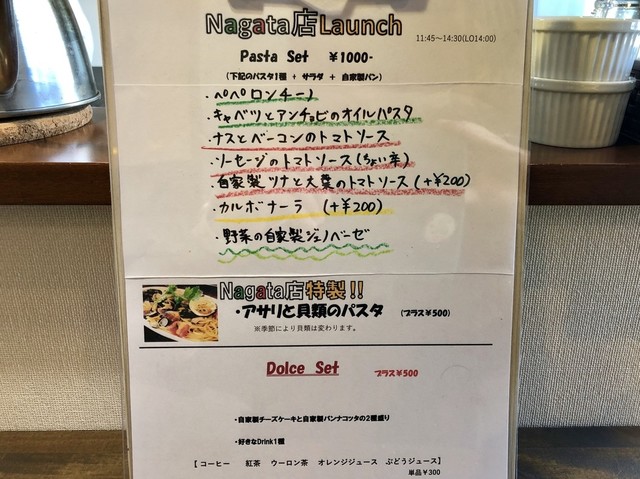 Nagata店Launch
11:45～14:30(LO14:00)
Pasta Set ￥1000-
（下記のパスタ1種 + サラダ + 自家製パン）
・ペペロンチーノ
・キャベツとアンチョビのオイルパスタ
・ナスとベーコンのトマトソース
・ソーセージのトマトソース(ちょい辛)
・自家製ツナと大葉のトマトソース(+¥200)
・カルボナーラ (+¥200)
・野菜の自家製ジェノベーゼ
Nagata店特製!!
・アサリと貝類のパスタ （プラス¥500）
※季節により貝類は変わります。
Dolce Set プラス¥500
・自家製チーズケーキと自家製パンナコッタの2種盛り
・好きなDrink1種
【 コーヒー 紅茶 ウーロン茶 オレンジジュース ぶどうジュース】
単品￥300